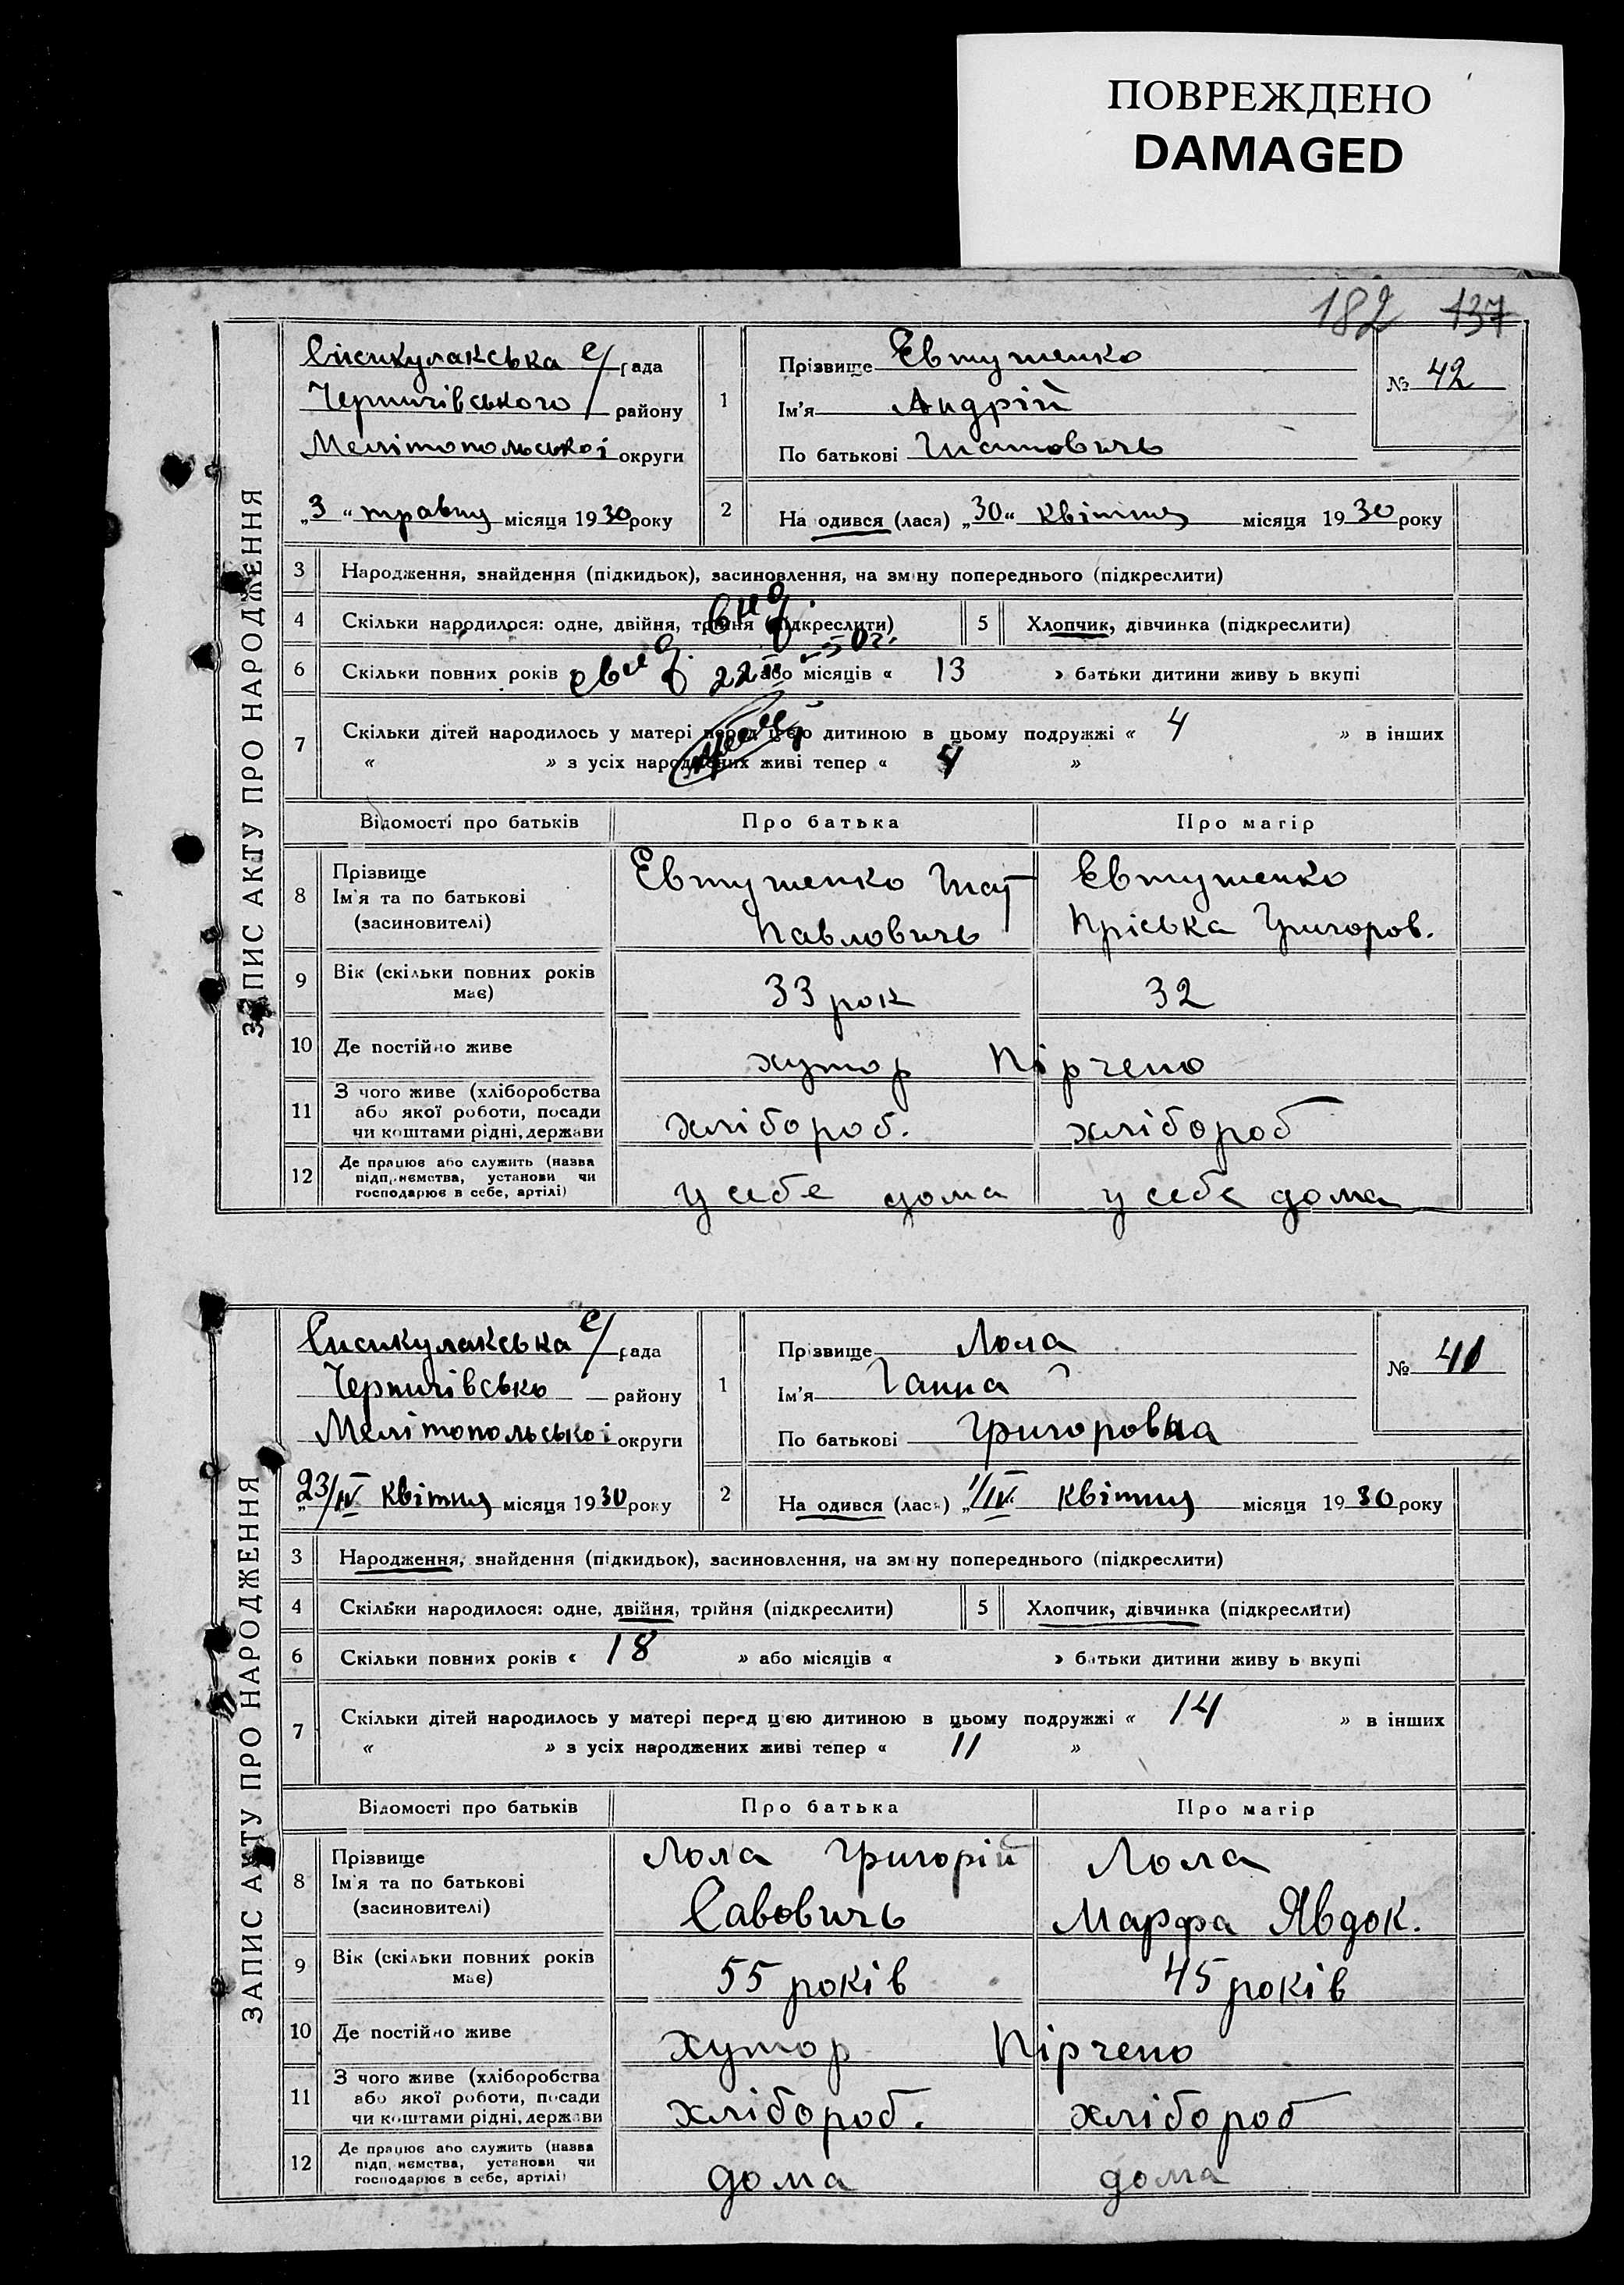 ПОВРЕЖДЕНО
DAMAGED
182 137
ЗАПИС АКТУ ПРО НАРОДЖЕННЯ
Сисикулакська с/рада
Чернигівського району
Мелітопольської округи
„3“ травня місяця 1930 року
1
Прізвище Євтушенко
Ім'я Андрій
По батькові Гнатовичь
№ 42
2
На одився (лася) „30“ квітня місяця 1930 року
3 Народження, знайдення (підкидьок), засиновлення, на зміну попереднього (підкреслити)
4 Скільки народилося: одне, двійня, трійня (підкреслити)
5 Хлопчик, дівчинка (підкреслити)
6 Скільки повних років або місяців « 13 » батьки дитини живу ь вкупі
7 Скільки дітей народилось у матері перед цією дитиною в цьому подружжі « 4 » в інших
« » з усіх народжених живі тепер « 4 »
Відомості про батьків Про батька Про матір
8 Прізвище
Ім'я та по батькові
(засиновителі)
Євтушенко Гнат
Павловичь
Євтушенко
Пріська Григоров.
9 Вік (скільки повних років має) 33 рок 32
10 Де постійно живе хутор Пірчено
11 З чого живе (хліборобства
або якої роботи, посади
чи коштами рідні, держави
хлібороб. хлібороб
12 Де працює або служить (назва
підприємства, установи чи
господарює в себе, артілі)
у себе дома у себе дома
ЗАПИС АКТУ ПРО НАРОДЖЕННЯ
Сисикулакська с/рада
Чернигівсько району
Мелітопольської округи
„23/IV квітня місяця 1930 року
1
Прізвище Лола
Ім'я Ганна
По батькові Григоровна
№ 41
2
На одився (лася) „1/IV. квітня місяця 1930 року
3 Народження, знайдення (підкидьок), засиновлення, на зміну попереднього (підкреслити)
4 Скільки народилося: одне, двійня, трійня (підкреслити)
5 Хлопчик, дівчинка (підкреслити)
6 Скільки повних років « 18 » або місяців « » батьки дитини живу ь вкупі
7 Скільки дітей народилось у матері перед цією дитиною в цьому подружжі « 14 » в інших
« » з усіх народжених живі тепер « 11 »
Відомості про батьків Про батька Про матір
8 Прізвище
Ім'я та по батькові
(засиновителі)
Лола Григорій
Савовичь
Лола
Марфа Явдок.
9 Вік (скільки повних років має) 55 років 45 років
10 Де постійно живе хутор Пірчено
11 З чого живе (хліборобства
або якої роботи, посади
чи коштами рідні, держави
хлібороб. хлібороб
12 Де працює або служить (назва
підприємства, установи чи
господарює в себе, артілі)
дома дома